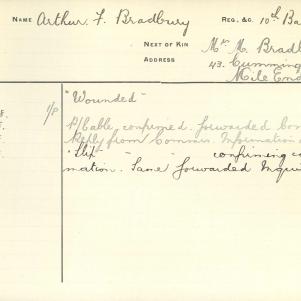 NAME Arthur. F. Bradbury REG. &C. 10th Ba
NEXT OF KIN Mrs. M. Bradb
ADDRESS 43. Cumming
Mile End
I/P "Wounded"
P/Cable, confirmed. forwarded Con
Reply from Commis. Information
"Slip - - confirming ca
mation. Same forwarded Inqui